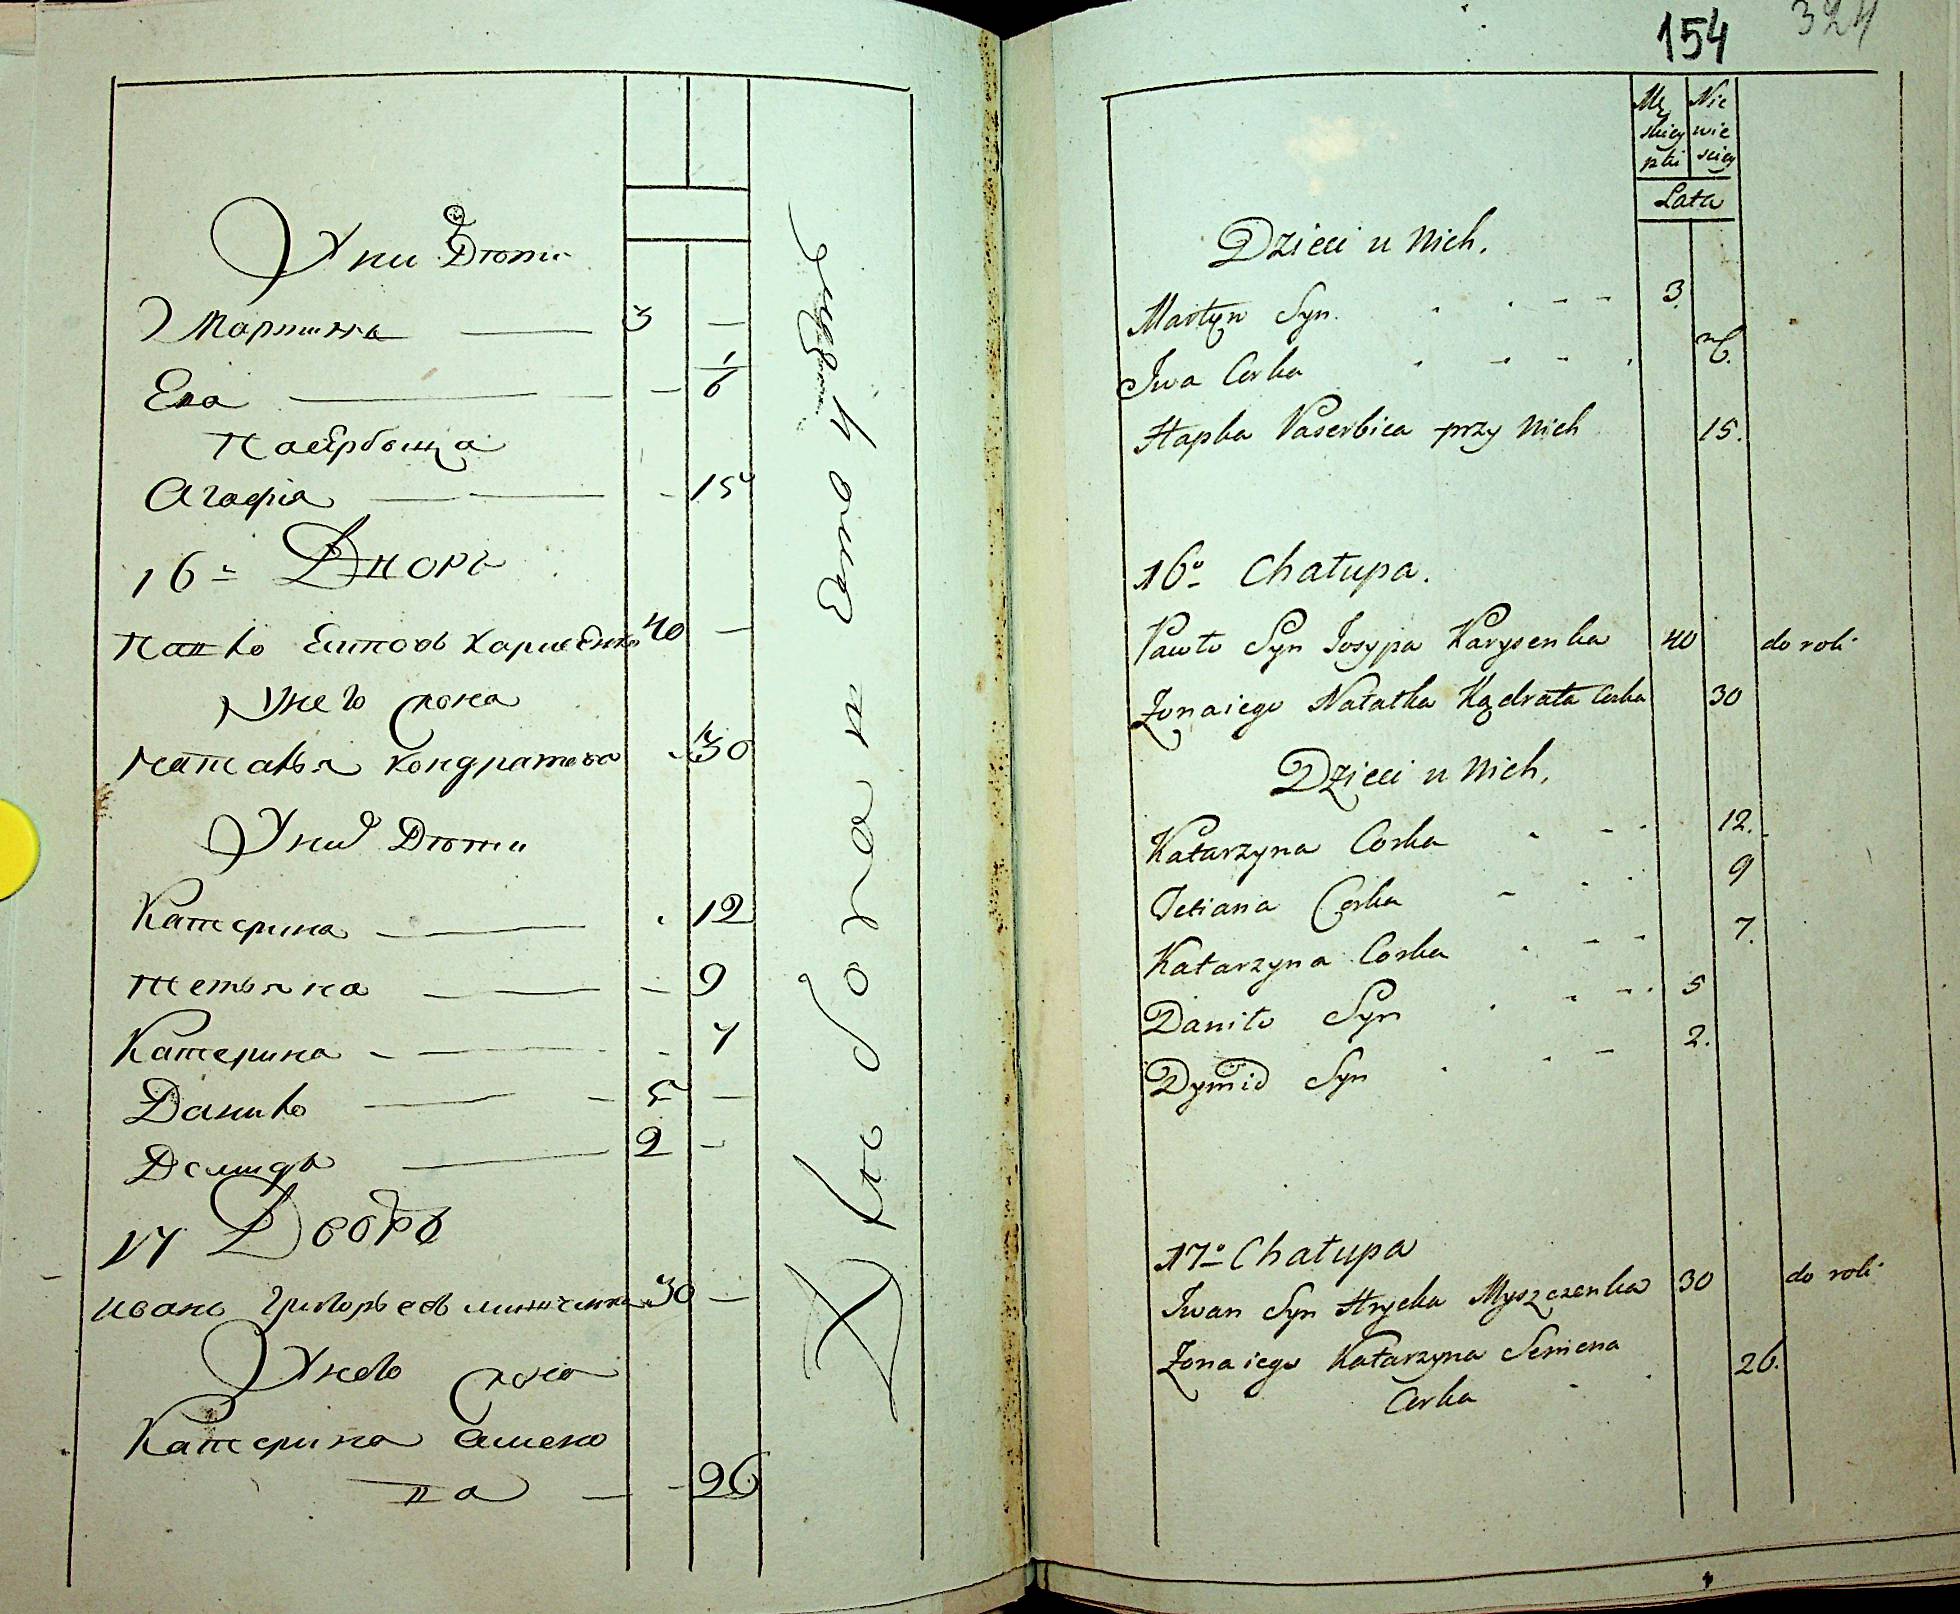 У них Дѣти
Мартинъ 3 —
Ева — 1/6
Пасербица
Агафiя — 15
16 = Дворъ
Павло Еѵповъ Карисенко 40 —
У него жона
Наталья Кондратова 30
У них Дѣти
Катерина 12
Тетьяна — 9
Катерина - 7
Данило - 5 —
Демидъ 2 —
17 Дворъ
Иванъ Григорьевъ 30 —
У него жона
Катерина Семено
ва — 26
154 324
Mę Nie
skiey wie
płci sciey
Lata
Dzieci u Nich.
Martyn Syn. 3.
Iwa Corka
Hapka Paserbica przy Nich 15.
16º Chałupa.
Pawło Syn Josypa Karysenka 40 do roli
Zona iego Natałka Kądrata Corka 30
Dzieci u Nich,
Katarzyna Corka 12.
Tetiana Corka 9
Katarzyna Corka 7.
Daniło Syn 5
Dymid Syn 2.
17º Chałupa
Iwan Syn Hrycka Myszczenka 30 do roli
Zona iego Katarzyna Semena 26.
Corka